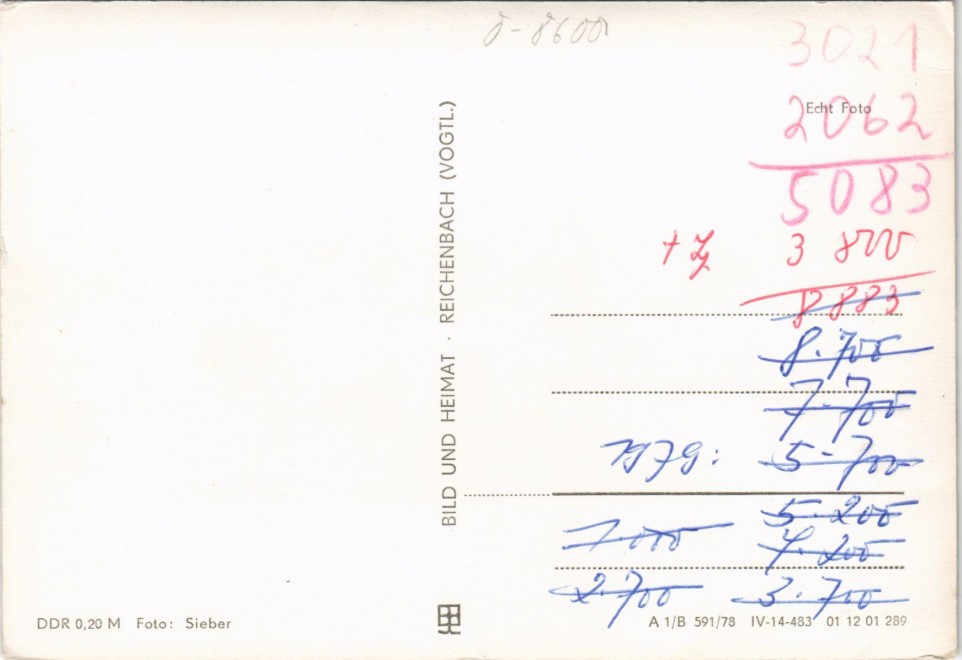 ö-8600
3021
Echt Foto
2062
5083
+ Zg 3 800
8883
8.700
7.700
1979: 5.700
5.200
1.000 4.200
2.700 3.700
BILD UND HEIMAT · REICHENBACH (VOGTL.)
DDR 0,20 M Foto: Sieber
A 1/B 591/78 IV-14-483 01 12 01 289